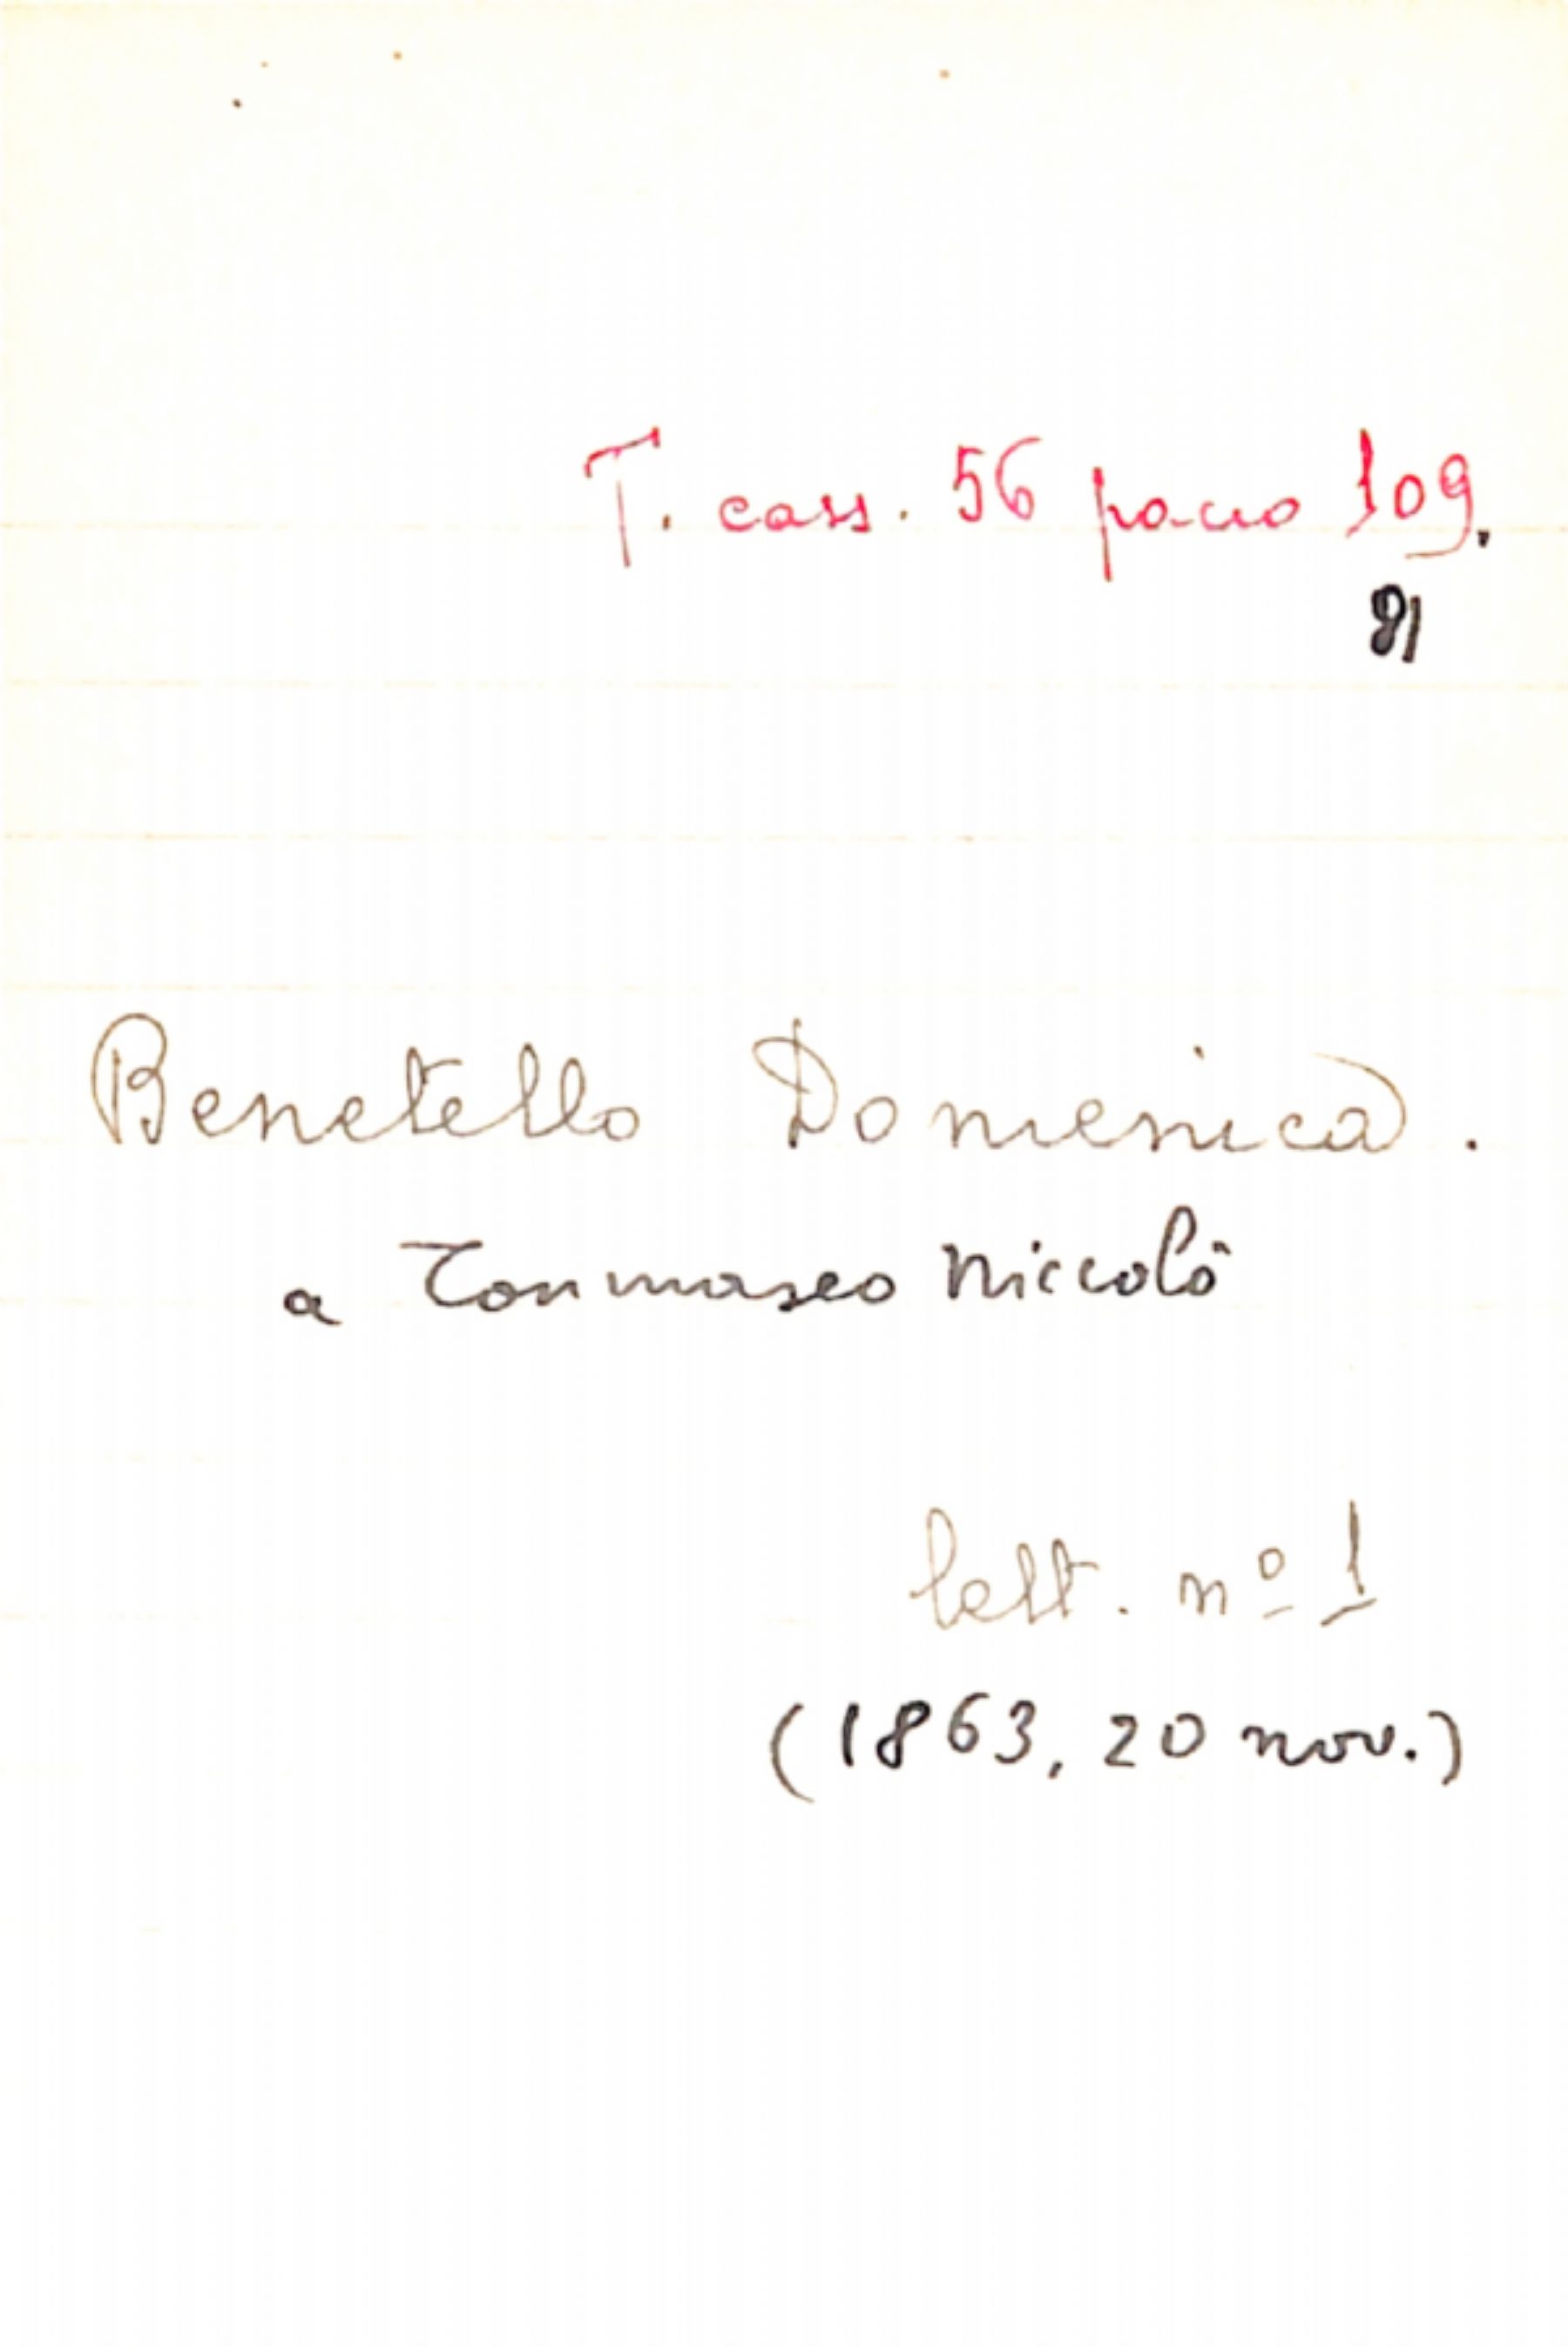 T. cass. 56 pacco 109.
81
Benetello Domenica.
a Tommaseo Niccolò
lett. nº 1
(1863, 20 nov.)